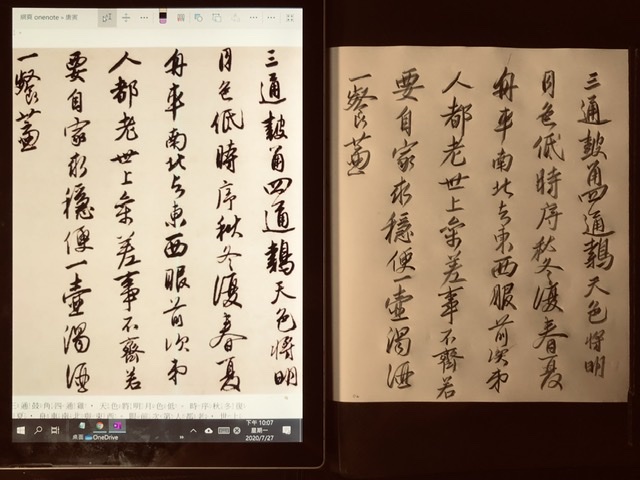 網頁 onenote » 唐寅
三通皷角四通鷄天色將明
月色低時序秋冬復春夏
舟車南北与東西眼前次弟
人都老世上參差事不齊若
要自家求穩便一壺濁酒
一餐虀
下午 10:07
星期一
2020/7/27
桌面
OneDrive
三通皷角四通鷄天色將明
月色低時序秋冬復春夏
舟車南北与東西眼前次弟
人都老世上參差事不齊若
要自家求穩便一壺濁酒
一餐虀